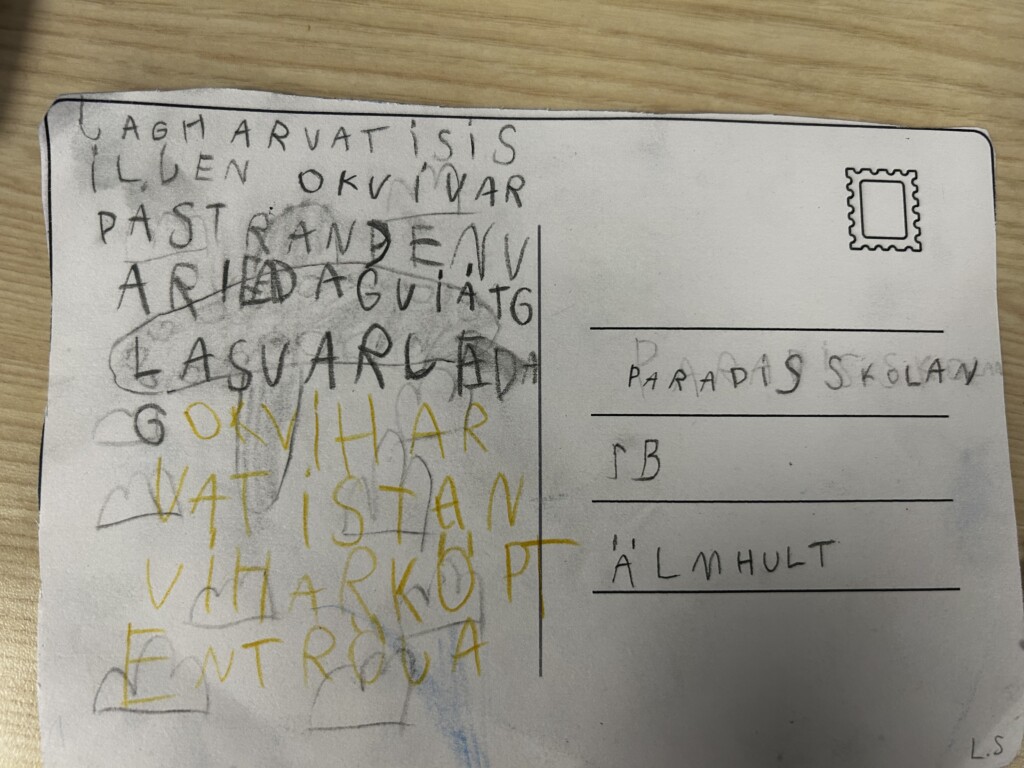 JAGH ARVAT ISIS
ILLEN OKVIVAR
PASTRANDENV
ARIEDAGVIÄTG
LASVARLEDA
G OKVIHAR
VAT ISTAN
VIHARKÖPT
ENTRÖJA
PARADIS SKOLAN
1B
ÄLMHULT
L.S